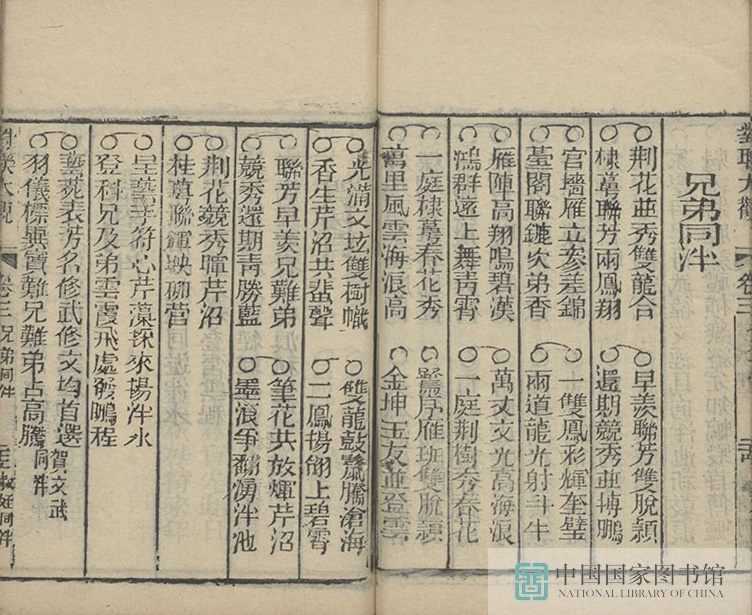 對聯大觀 卷三
兄弟同泮
荆花並秀雙龍合 早羨聯芳雙脫頴
棣萼聯芳兩鳳翔 還期競秀並摶鵬
宫墻雁立參差錦 一雙鳳彩輝奎璧
臺閣聯鑣次弟香 兩道龍光射斗牛
雁陣高翔鳴碧漢 萬丈文光高海浪
鴻群遠上舞青霄 一庭荆樹秀春花
一庭棣萼春花秀 黌序雁班雙脫頴
萬里風雲海浪高 金坤玉友並登雲
光滿文坛雙樹幟 雙龍鼓鬣騰滄海
香生芹沼共蜚聲 二鳳揚翎上碧霄
聯芳早羨兄難弟 筆花共放輝芹沼
競秀還期青勝藍 墨浪爭翻湧泮池
荆花競秀暉芹沼
桂萼聯輝映柳营
芹藻採來揚泮水
登科兄及弟雲霞飛處發鵬程
藝苑表芳名修武修文均首選
羽儀標異質難兄難弟占高騰
賀文武同泮
卷三 兄弟同泮
叔姪同泮